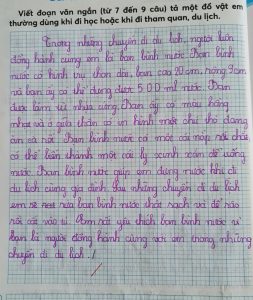 Viết đoạn văn ngắn (từ 7 đến 9 câu) tả một đồ vật em
thường dùng khi đi học hoặc khi đi tham quan, du lịch.
Trong những chuyến đi du lịch, người luôn
đồng hành cùng em là bạn bình nước. Bạn bình
nước có hình trụ thon dài, bạn cao 20cm, rộng 9cm
và bạn ấy có thể đựng được 500 ml nước. Bạn
được làm từ nhựa cứng. Bạn ấy có màu hồng
nhạt và ở giữa thân có in hình một chú thỏ đang
ăn cà rốt. Bạn bình nước có một cái nắp rời chắc
có thể biến thành một cái ly xinh xắn để uống
nước. Bạn bình nước giúp em đựng nước khi đi
du lịch cùng gia đình. Sau những chuyến đi du lịch
em sẽ rửa bạn bình nước thật sạch và để ráo
rồi cất vào tủ. Em rất yêu thích bạn bình nước vì
bạn là người đồng hành cùng với em trong những
chuyến đi du lịch./